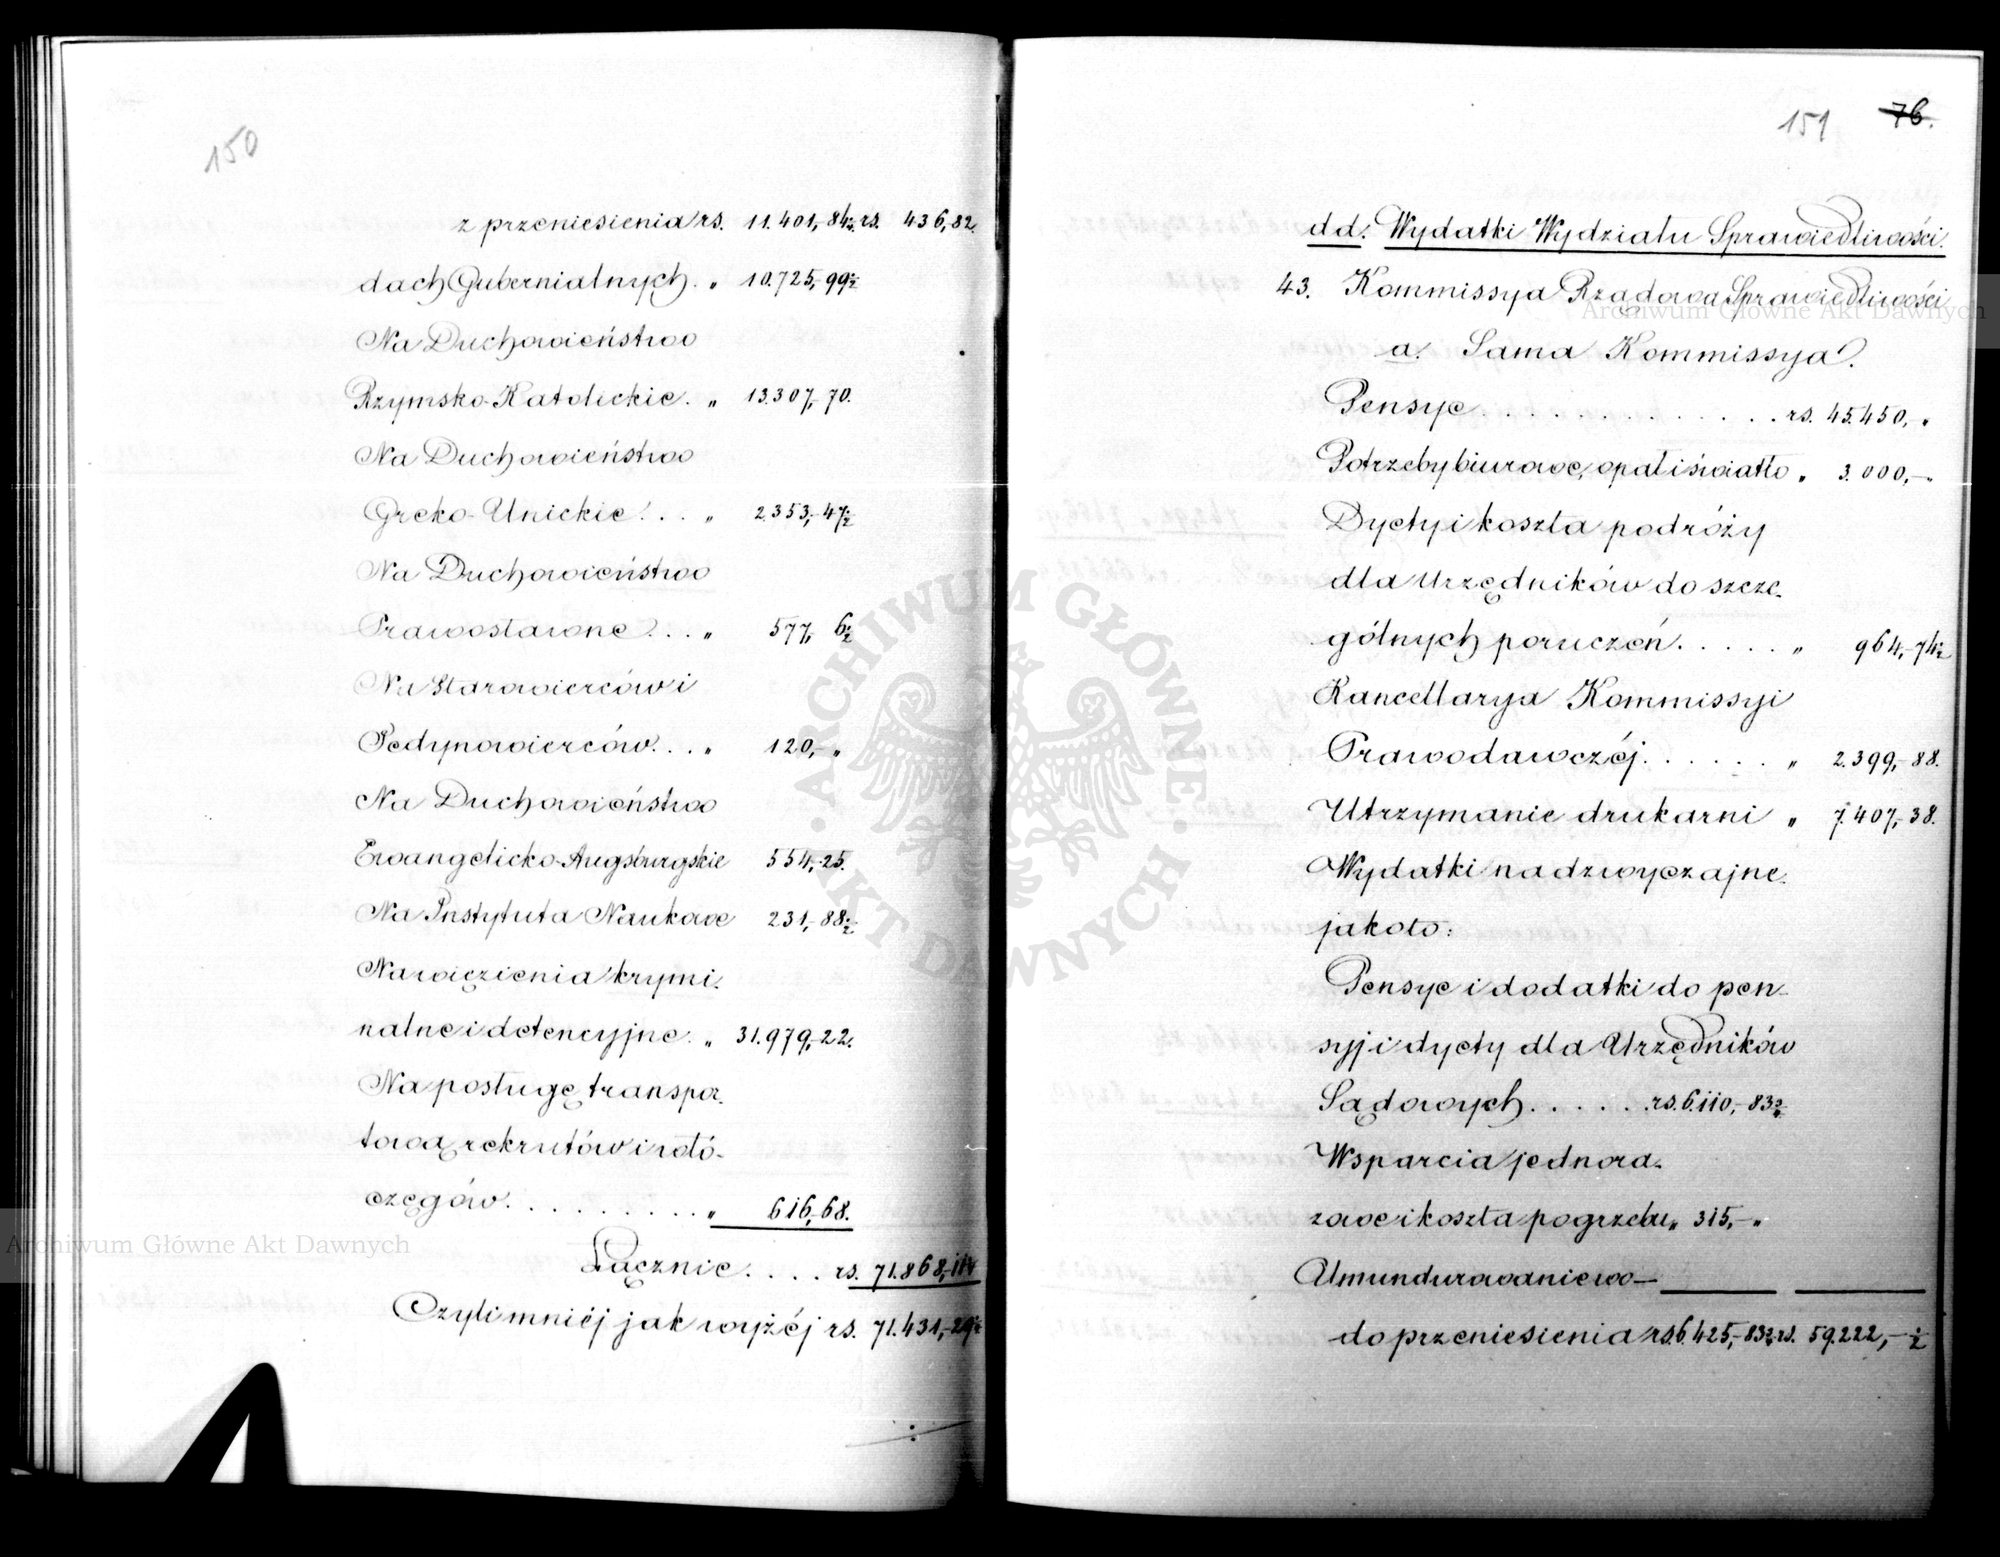 150
z przeniesienia rs. 11.401,-84½ rs. 436,82.
dach Gubernialnych. " 10.725,-99½
Na Duchowieństwo
Rzymsko-Katolickie. " 13.307,-70.
Na Duchowieństwo
Greko-Unickie . . . " 2.353,-47½
Na Duchowieństwo
Prawosławne . . . " 577,- 6½
Na Starowierców i
Jedynowierców . . . " 120,- "
Na Duchowieństwo
Ewangelicko-Augsburgskie 554,-25.
Na Instytuta Naukowe 231,-88½
Na więzienia krymi-
nalne i detencyjne. " 31.979,-22.
Na posługę transpor-
tową rekrutów i włó-
częgów . . . . . . . . . " 616,-68.
Łącznie . . . . rs. 71.868,-11
Czyli mniéj jak wyżéj rs. 71.431,-29
151 76.
dd. Wydatki Wydziału Sprawiedliwości.
43. Kommissya Rządowa Sprawiedliwości
a. Sama Kommissya.
Pensye . . . . . . . . . . . . . rs. 45.450, "
Potrzeby biurowe, opał i światło " 3.000,-"
Dyety i koszta podróży
dla Urzędników do szcze-
gólnych poruczeń . . . . . " 964,-74½
Kancellarya Kommissyi
Prawodawczéj . . . . . . " 2.399,-88.
Utrzymanie drukarni " 7.407,-38.
Wydatki nadzwyczajne.
jakoto:
Pensye i dodatki do pen-
syj i dyety dla Urzędników
Sądowych . . . . . rs. 6.110,-83
Wsparcia jednora-
zowe i koszta pogrzebu " 315,-"
Umundurowanie wo-
do przeniesienia rs. 6.425,-83 rs. 59.222,-½
Archiwum Główne Akt Dawnych
Archiwum Główne Akt Dawnych
· ARCHIWUM GŁÓWNE · AKT DAWNYCH